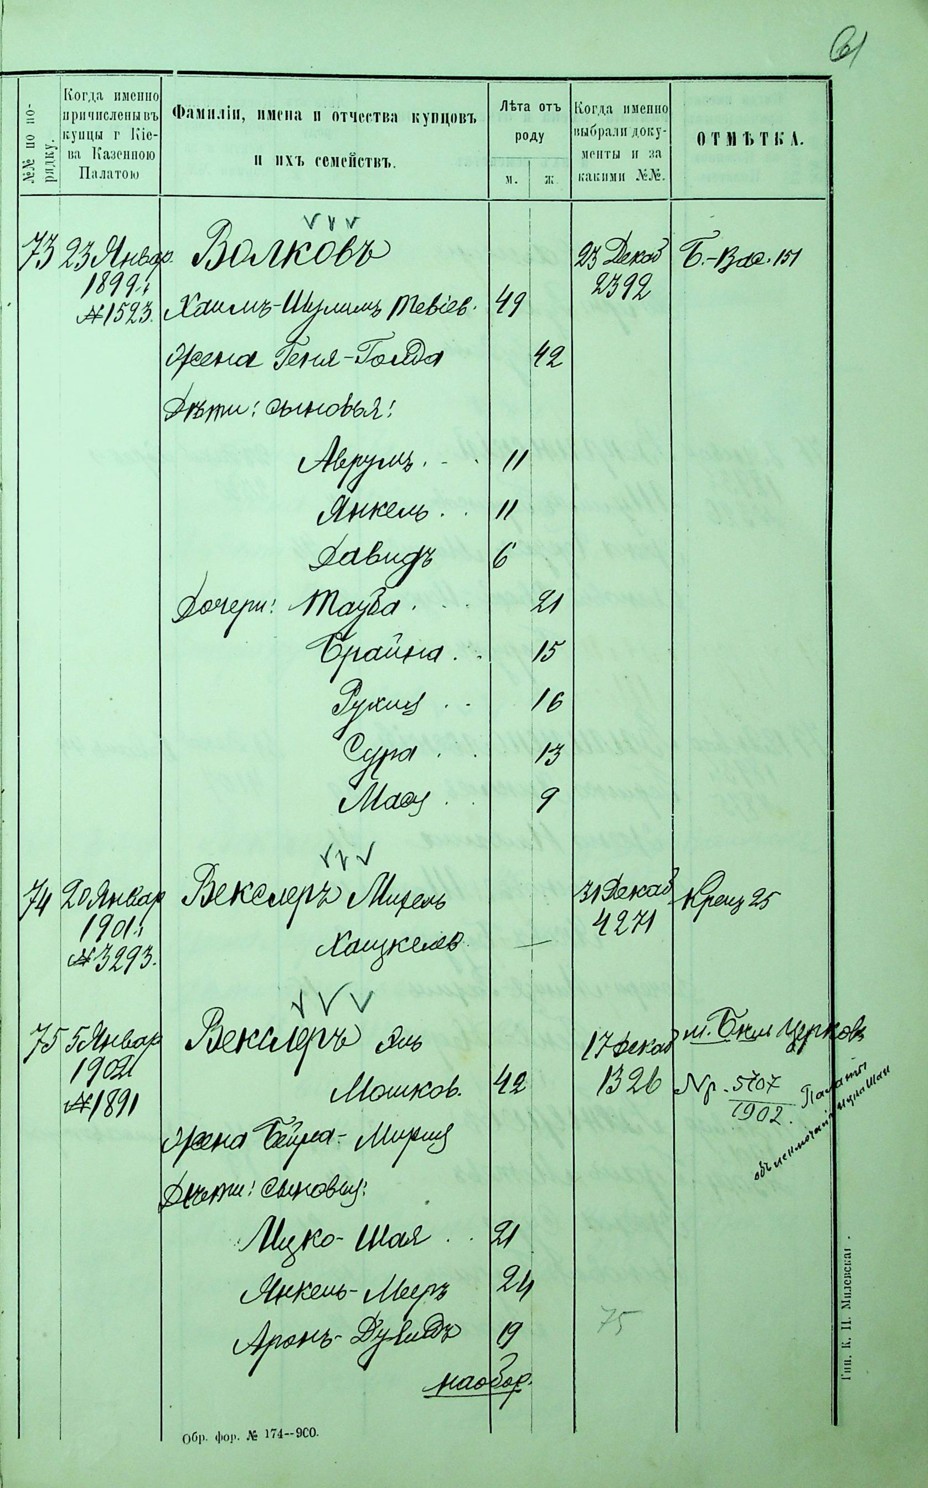 61
№№ по порядку.
Когда именно
причислены въ
купцы г Кіе-
ва Казенною
Палатою
Фамиліи, имена и отчества купцовъ
и ихъ семействъ.
Лѣта отъ
роду
м. ж
Когда именно
выбрали доку-
менты и за
какими №№.
ОТМѢТКА.
73 23 Январ. Волковъ 23 Декаб Б.-Вас. 151
1899 г. 2392
№1523. Хаимъ-Шулимъ Тевіев. 49
Жена Геня-Голда 42
Дѣти: сыновья:
Аврумъ 11
Янкель 11
Давидъ 6
Дочери: Тауба 21
Брайна 15
Рухля 16
Сура 13
Мася 9
74 20 Январ Векслеръ Михель 31 Декаб Крещ 25
1901 г. 4271
№3293. Хацкелев. —
75 5 Январ Векслеръ Янк 17 Декаб м. Бѣл Церковь
1902 1326
№1891 Мошков. 42 Пр. 5707
1902. Палаты
Жена Бейра-Мирля
Дѣти: сыновья:
Ицко-Шая 21
Янкель-Меер 24
Аронъ-Дувидъ 19
75
на обор.
Обр. фор. № 174--900.
Тип. К. Н. Милевскаг .